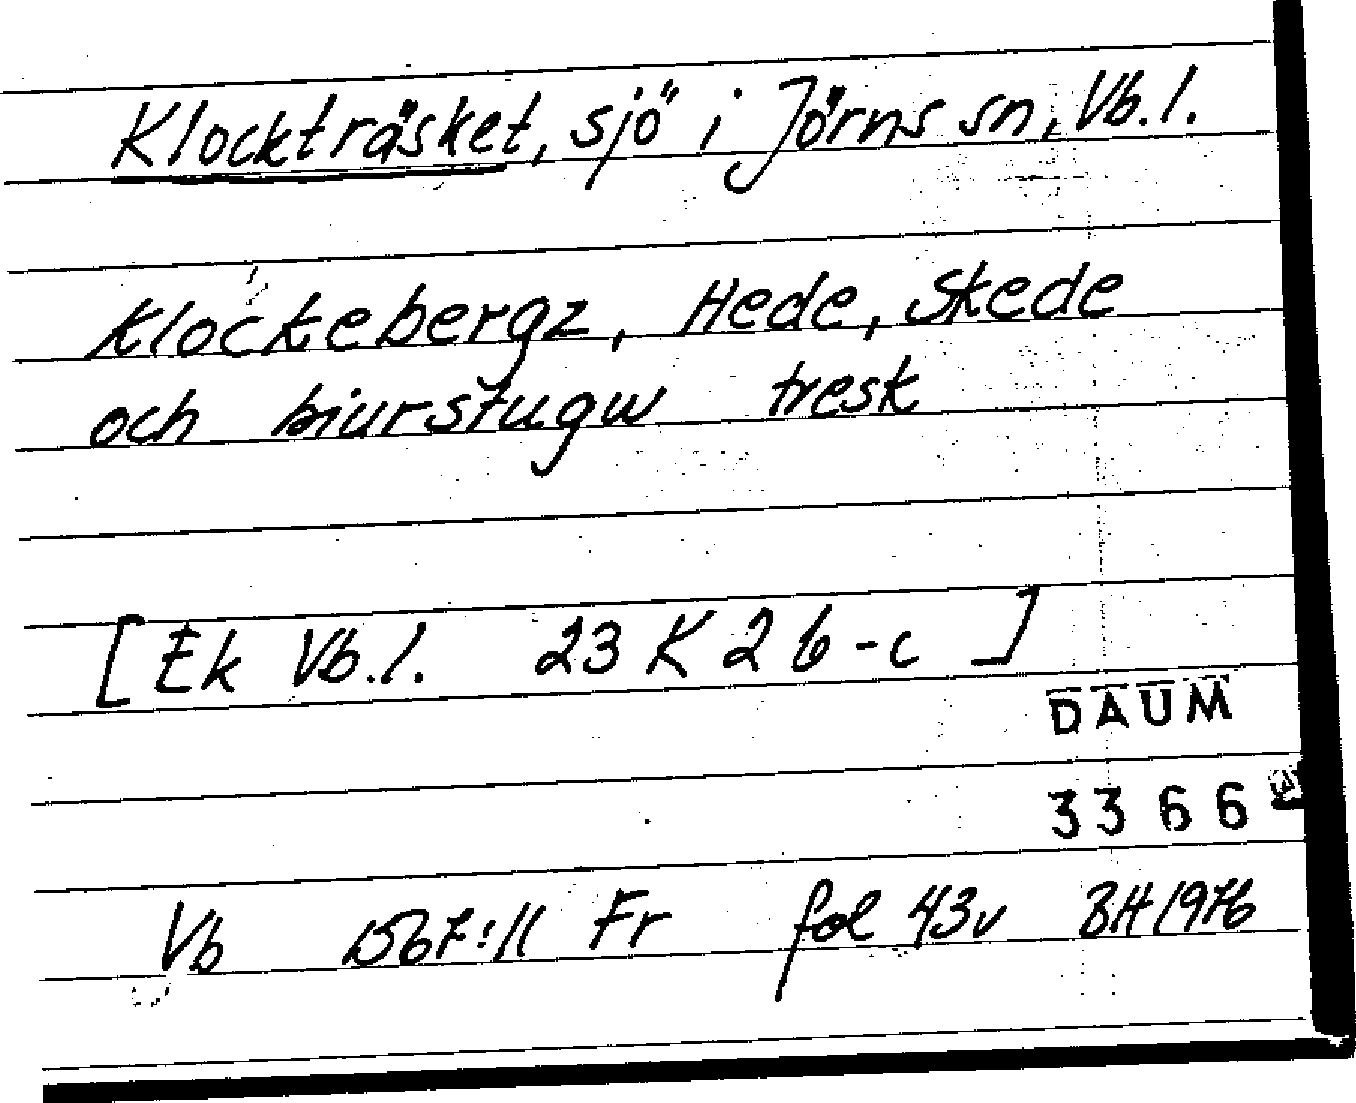 Klockträsket, sjö i Jörns sn, Vb.l.
Klockebergz, Hede, Skede
och biurstugw tresk
[Ek Vb.l. 23 K 2 b-c ]
DAUM
3366
Vb 1567:11 Fr fol 43v BH 1976